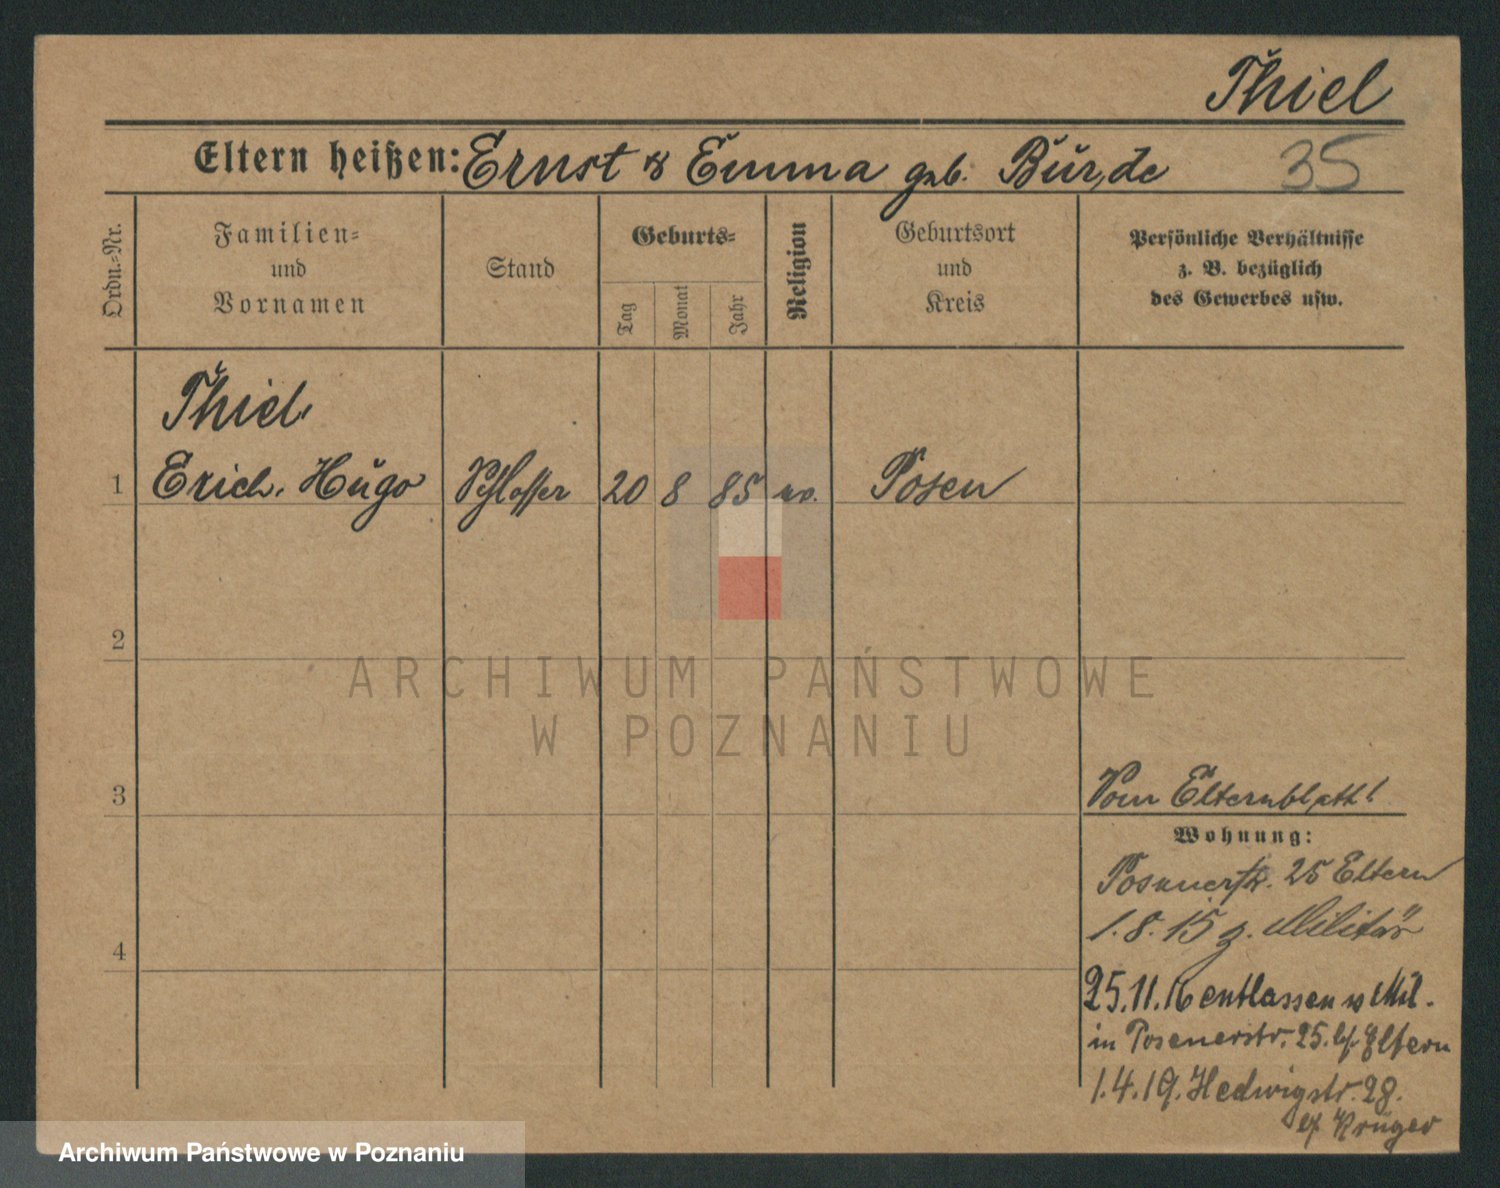 Thiel
Eltern heißen: Ernst & Emma geb. Burde 35
Ordn.-Nr.
Familien-
und
Vornamen
Stand
Geburts-
Tag
Monat
Jahr
Religion
Geburtsort
und
Kreis
Persönliche Verhältnisse
z. B. bezüglich
des Gewerbes usw.
Thiel,
1 Erich, Hugo Schlosser 20 8 85 ev. Posen
2
ARCHIWUM PAŃSTWOWE
W POZNANIU
3
Vom Elternblatt!
Wohnung:
Posenerstr. 25 Eltern
1.8.15 z. Militär
4
25.11.16 entlassen v Mil.
in Posenerstr. 25. b/ Eltern
1.4.19. Hedwigstr. 28.
b/ Krüger
Archiwum Państwowe w Poznaniu